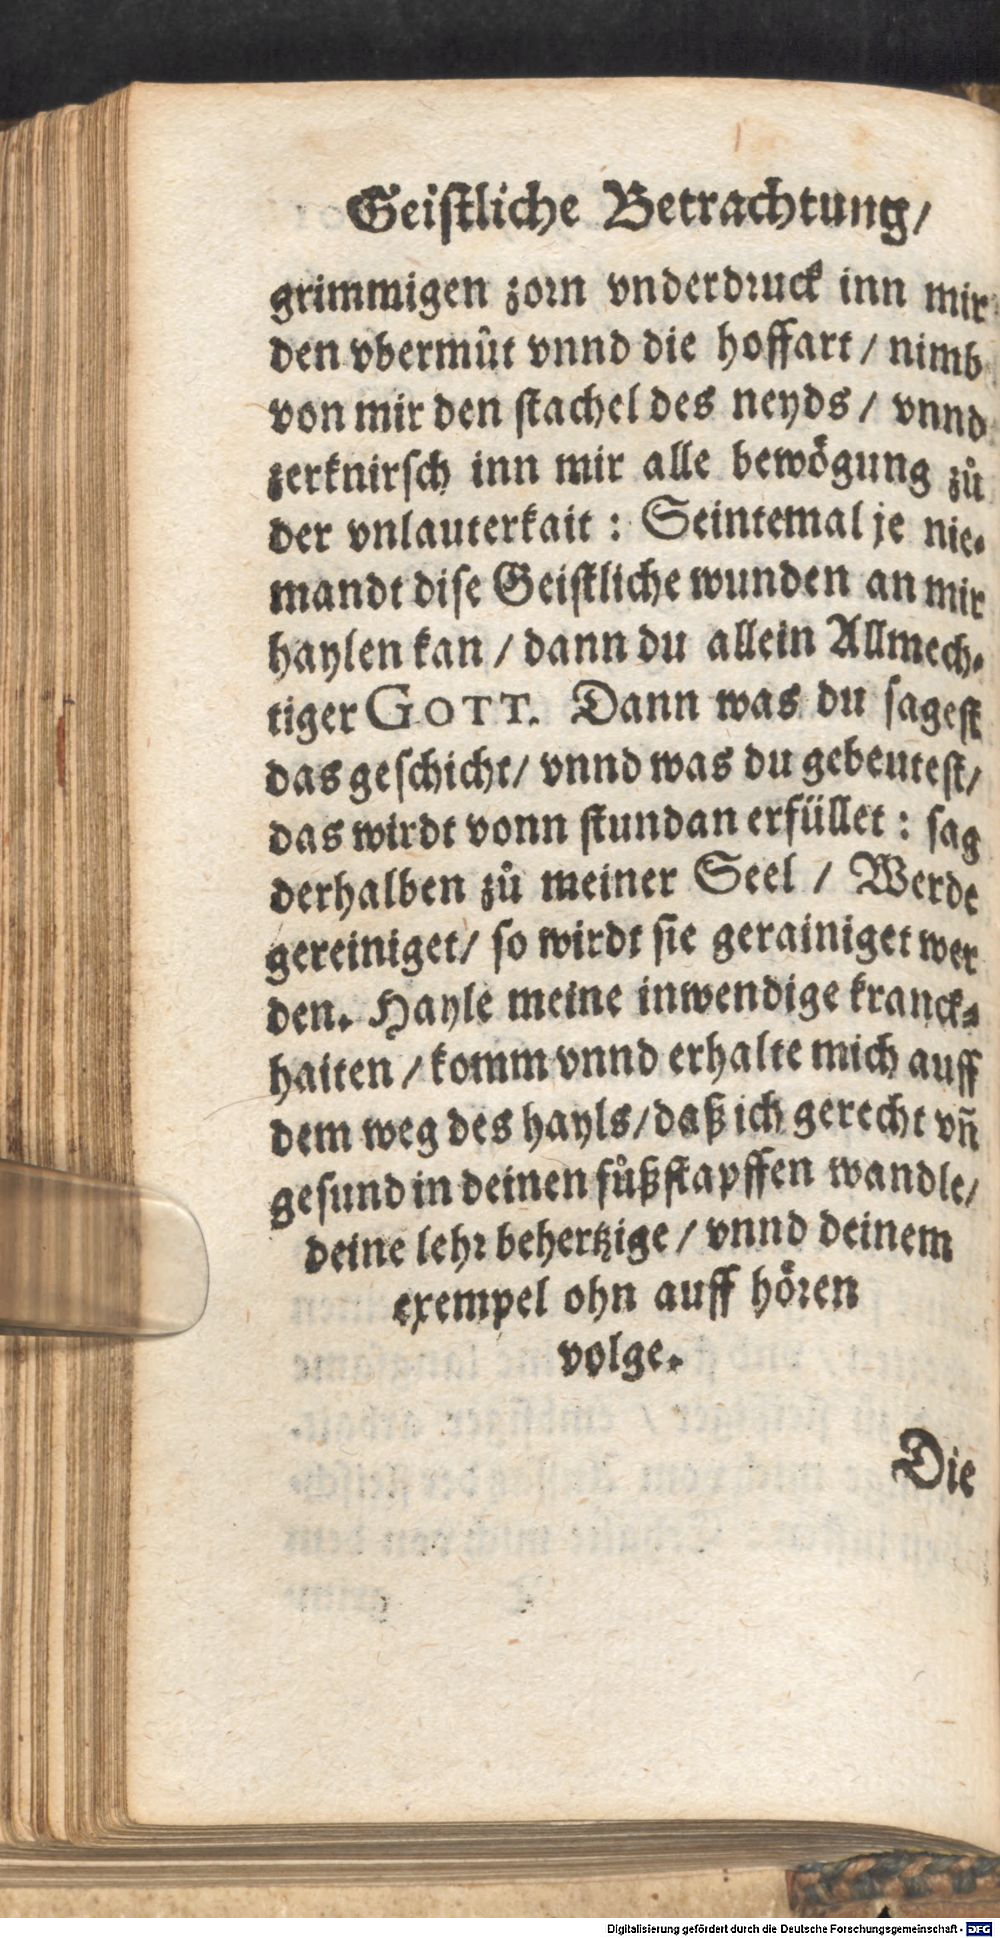 Geistliche Betrachtung/
grimmigen zorn vnderdruck inn mir
den vbermût vnnd die hoffart / nimb
von mir den stachel des neyds / vnnd
zerknirsch inn mir alle bewögung zů
der vnlauterkait : Seintemal je nie-
mandt dise Geistliche wunden an mir
haylen kan / dann du allein Allmech-
tiger GOTT. Dann was du sagest
das geschicht/ vnnd was du gebeutest/
das wirdt vonn stundan erfüllet : sag
derhalben zů meiner Seel / Werde
gereiniget/ so wirdt sie gerainiget wer
den. Hayle meine inwendige kranck-
haiten / komm vnnd erhalte mich auff
dem weg des hayls/daß ich gerecht vñ
gesund in deinen fůßstapffen wandle/
deine lehr behertzige / vnnd deinem
exempel ohn auff hören
volge.
Die
Digitalisierung gefördert durch die Deutsche Forschungsgemeinschaft - DFG